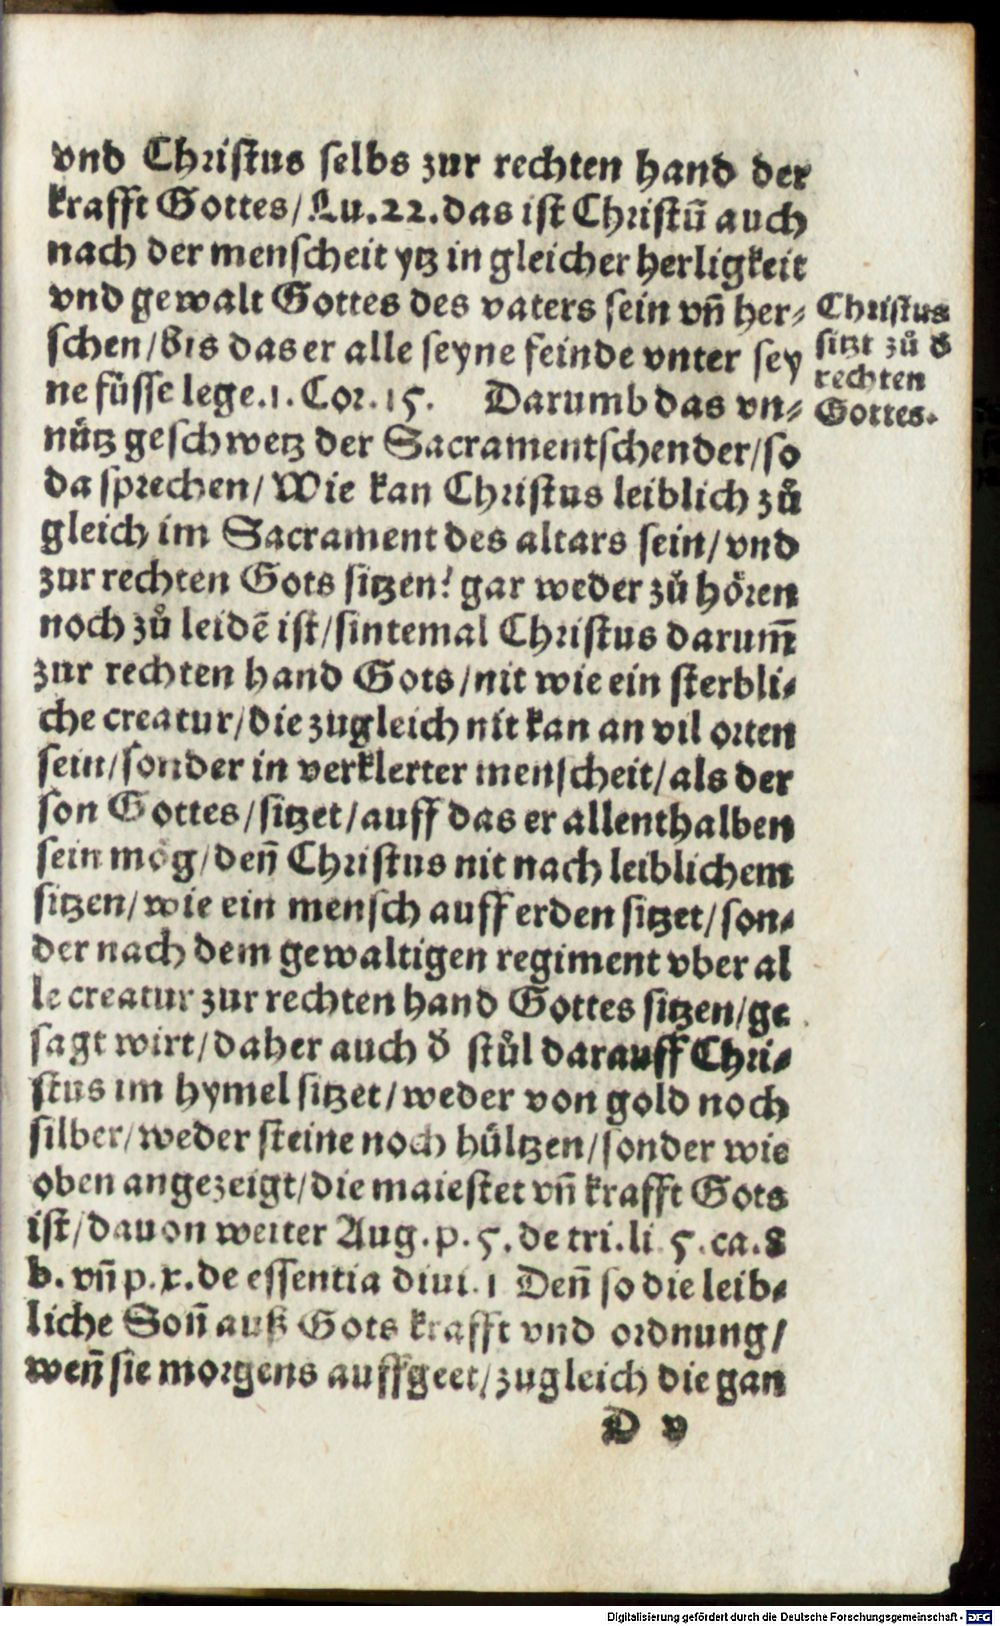 vnd Christus selbs zur rechten hand der
krafft Gottes/Lu.22.das ist Christū auch
nach der menscheit ytz in gleicher herligkeit
vnd gewalt Gottes des vaters sein vn̄ her-
schen/bis das er alle seyne feinde vnter sey
ne füsse lege.1.Cor.15. Darumb das vn-
nütz geschwetz der Sacramentschender/so
da sprechen/Wie kan Christus leiblich zů
gleich im Sacrament des altars sein/vnd
zur rechten Gots sitzen? gar weder zů hören
noch zů leidē ist/sintemal Christus darum̄
zur rechten hand Gots/nit wie ein sterbli-
che creatur/die zugleich nit kan an vil orten
sein/sonder in verklerter menscheit/als der
son Gottes/sitzet/auff das er allenthalben
sein mög/den̄ Christus nit nach leiblichem
sitzen/wie ein mensch auff erden sitzet/son-
der nach dem gewaltigen regiment vber al
le creatur zur rechten hand Gottes sitzen/ge
sagt wirt/daher auch d̄ stůl darauff Chri-
stus im hymel sitzet/weder von gold noch
silber/weder steine noch hültzen/sonder wie
oben angezeigt/die maiestet vn̄ krafft Gots
ist/dauon weiter Aug.p.5.de tri.li.5.ca.8
b.vn̄ p.x.de essentia diui.1 Den̄ so die leib-
liche Son̄ auß Gots krafft vnd ordnung/
wen̄ sie morgens auffgeet/zugleich die gan
D v
Christus
sitzt zů d̄
rechten
Gottes.
Digitalisierung gefördert durch die Deutsche Forschungsgemeinschaft - DFG